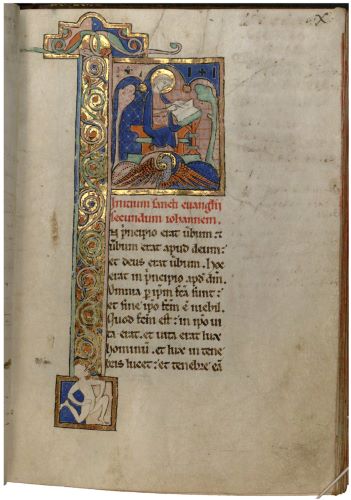 X
Inicium sancti evangelii
secundum iohannem.
N pncipio erat ubum: et
ubum erat apud deum:
et deus erat ubum. hoc
erat in pncipio apd dm.
Omnia p ipm fca sunt:
et sine ipo fcm e nichil.
Quod fcm est: in ipo vi
ta erat. et vita erat lux
hominu. et lux in tene
bris lucet: et tenebre ea